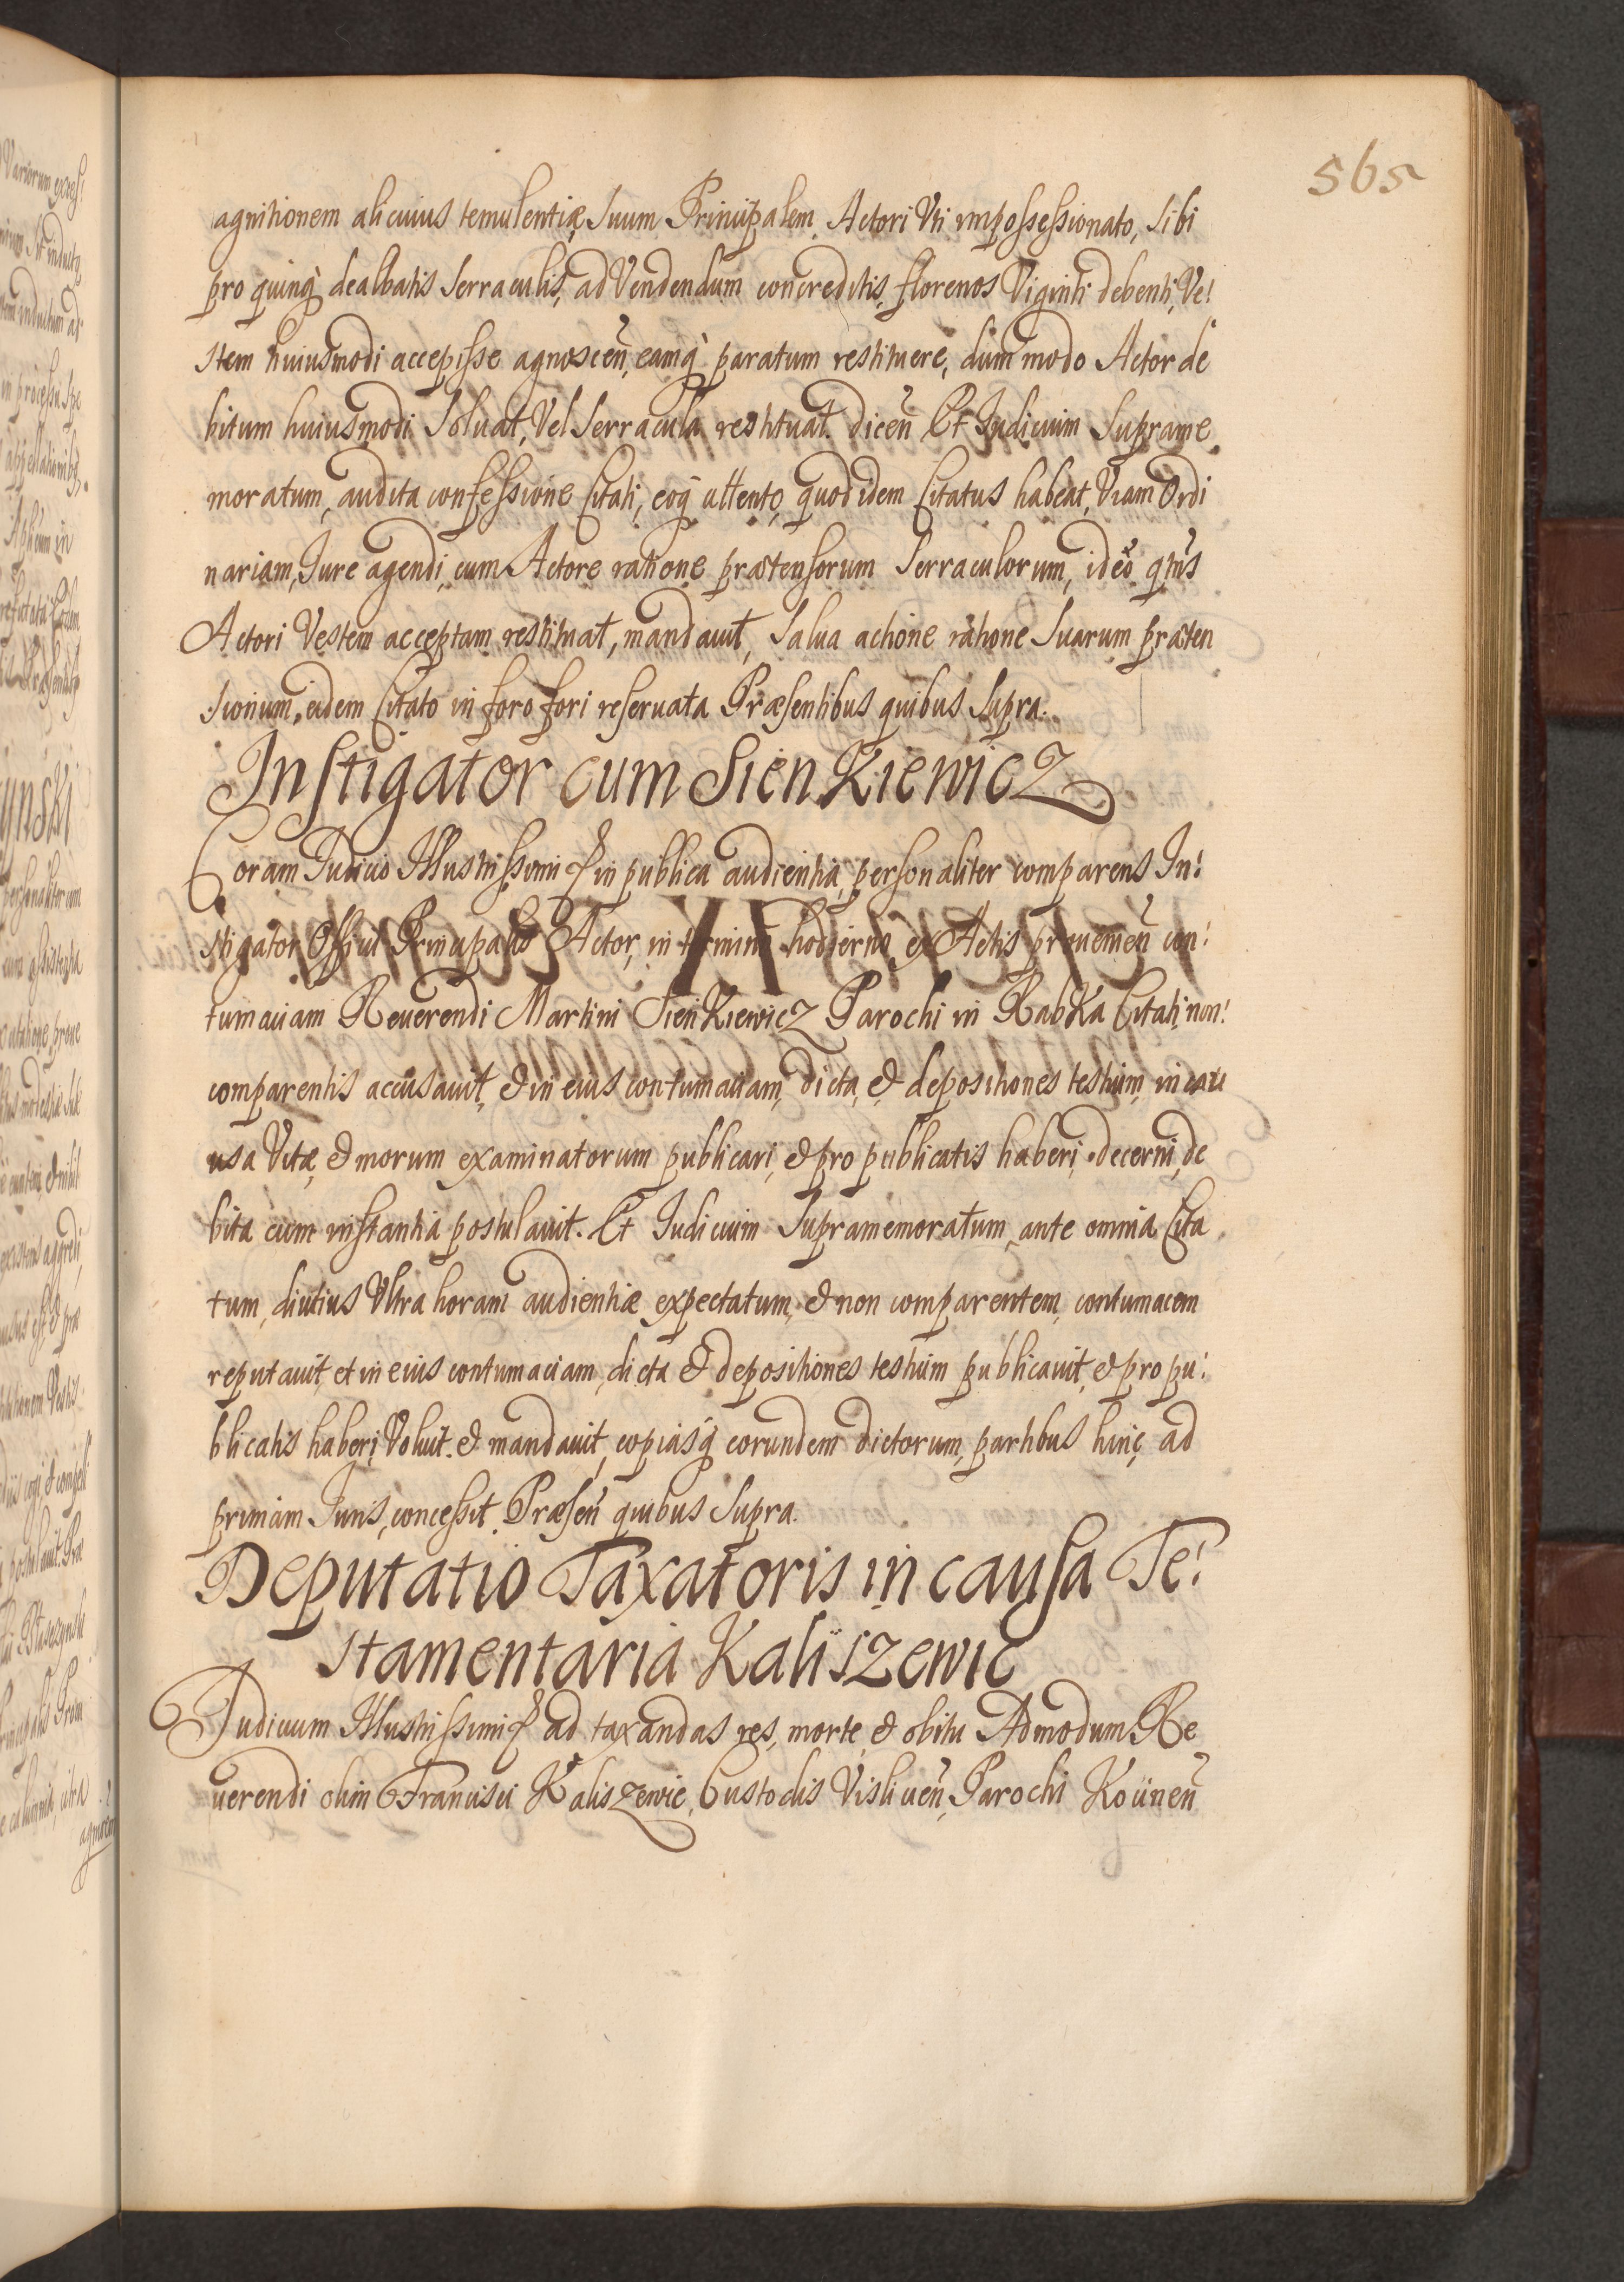 565
agnitionem alicuius temulentiæ, suum Principalem Actori Vti impossessionato, sibi
pro quinq dealbatis serraculis, ad Vendendum concreditis, florenos Viginti debenti, Ve:
stem huiusmodi accepisse agnoscen̄, eamq̀ paratum restituere, dummodo Actor de
bitum huiusmodi soluat, Vel serracula restituat. dicen̄ Et Iudicium Suprame
moratum, audita confessione Citati, eoq̀ attento, quod idem Citatus habeat, Viam Ordi
nariam, Iure agendi, cum Actore ratione prætensorum serraculorum, ideò qtn̄s
Actori Vestem acceptam restituat, mandauit, salua actione ratione suarum præten
sionum, eidem Citato in foro fori reseruata Præsentibus quibus supra.
Instigator cum Sienkiewicz
Coram Iudicio Illustrissimi & in publica audientia, personaliter comparens In:
stigator Officii Principalis Actor, in termino hodierno ex Actis prouemen̄ con:
tumaciam Reuerendi Martini Sienkiewicz Parochi in Rabka Citati, non:
comparentis accusauit, & in eius contumaciam, dicta, & depositiones testium, in cau
usa Vitæ, & morum examinatorum publicari, & pro publicatis haberi, decerni, de
bita cum instantia postulauit. Et Iudicium Supramemoratum, ante omnia Cita
tum, diutius Vltra horam audientiæ expectatum, & non comparentem, contumacem
reputauit, et in eius contumaciam, dicta & depositiones testium publicauit, & pro pu:
blicatis haberi Voluit. & mandauit, copiasq̀ eorundem dictorum, partibus hinc, ad
primam Iuris, concessit. Præsen̄ quibus supra.
Deputatio Taxatoris in causa Te:
stamentaria Kaliszewic
Iudicium Illustrissimi & ad taxandas res, morte, & obitu Admodum Re
uerendi olim Francisci Kaliszewic, Custodis Visliuen̄, Parochi Koünen̄